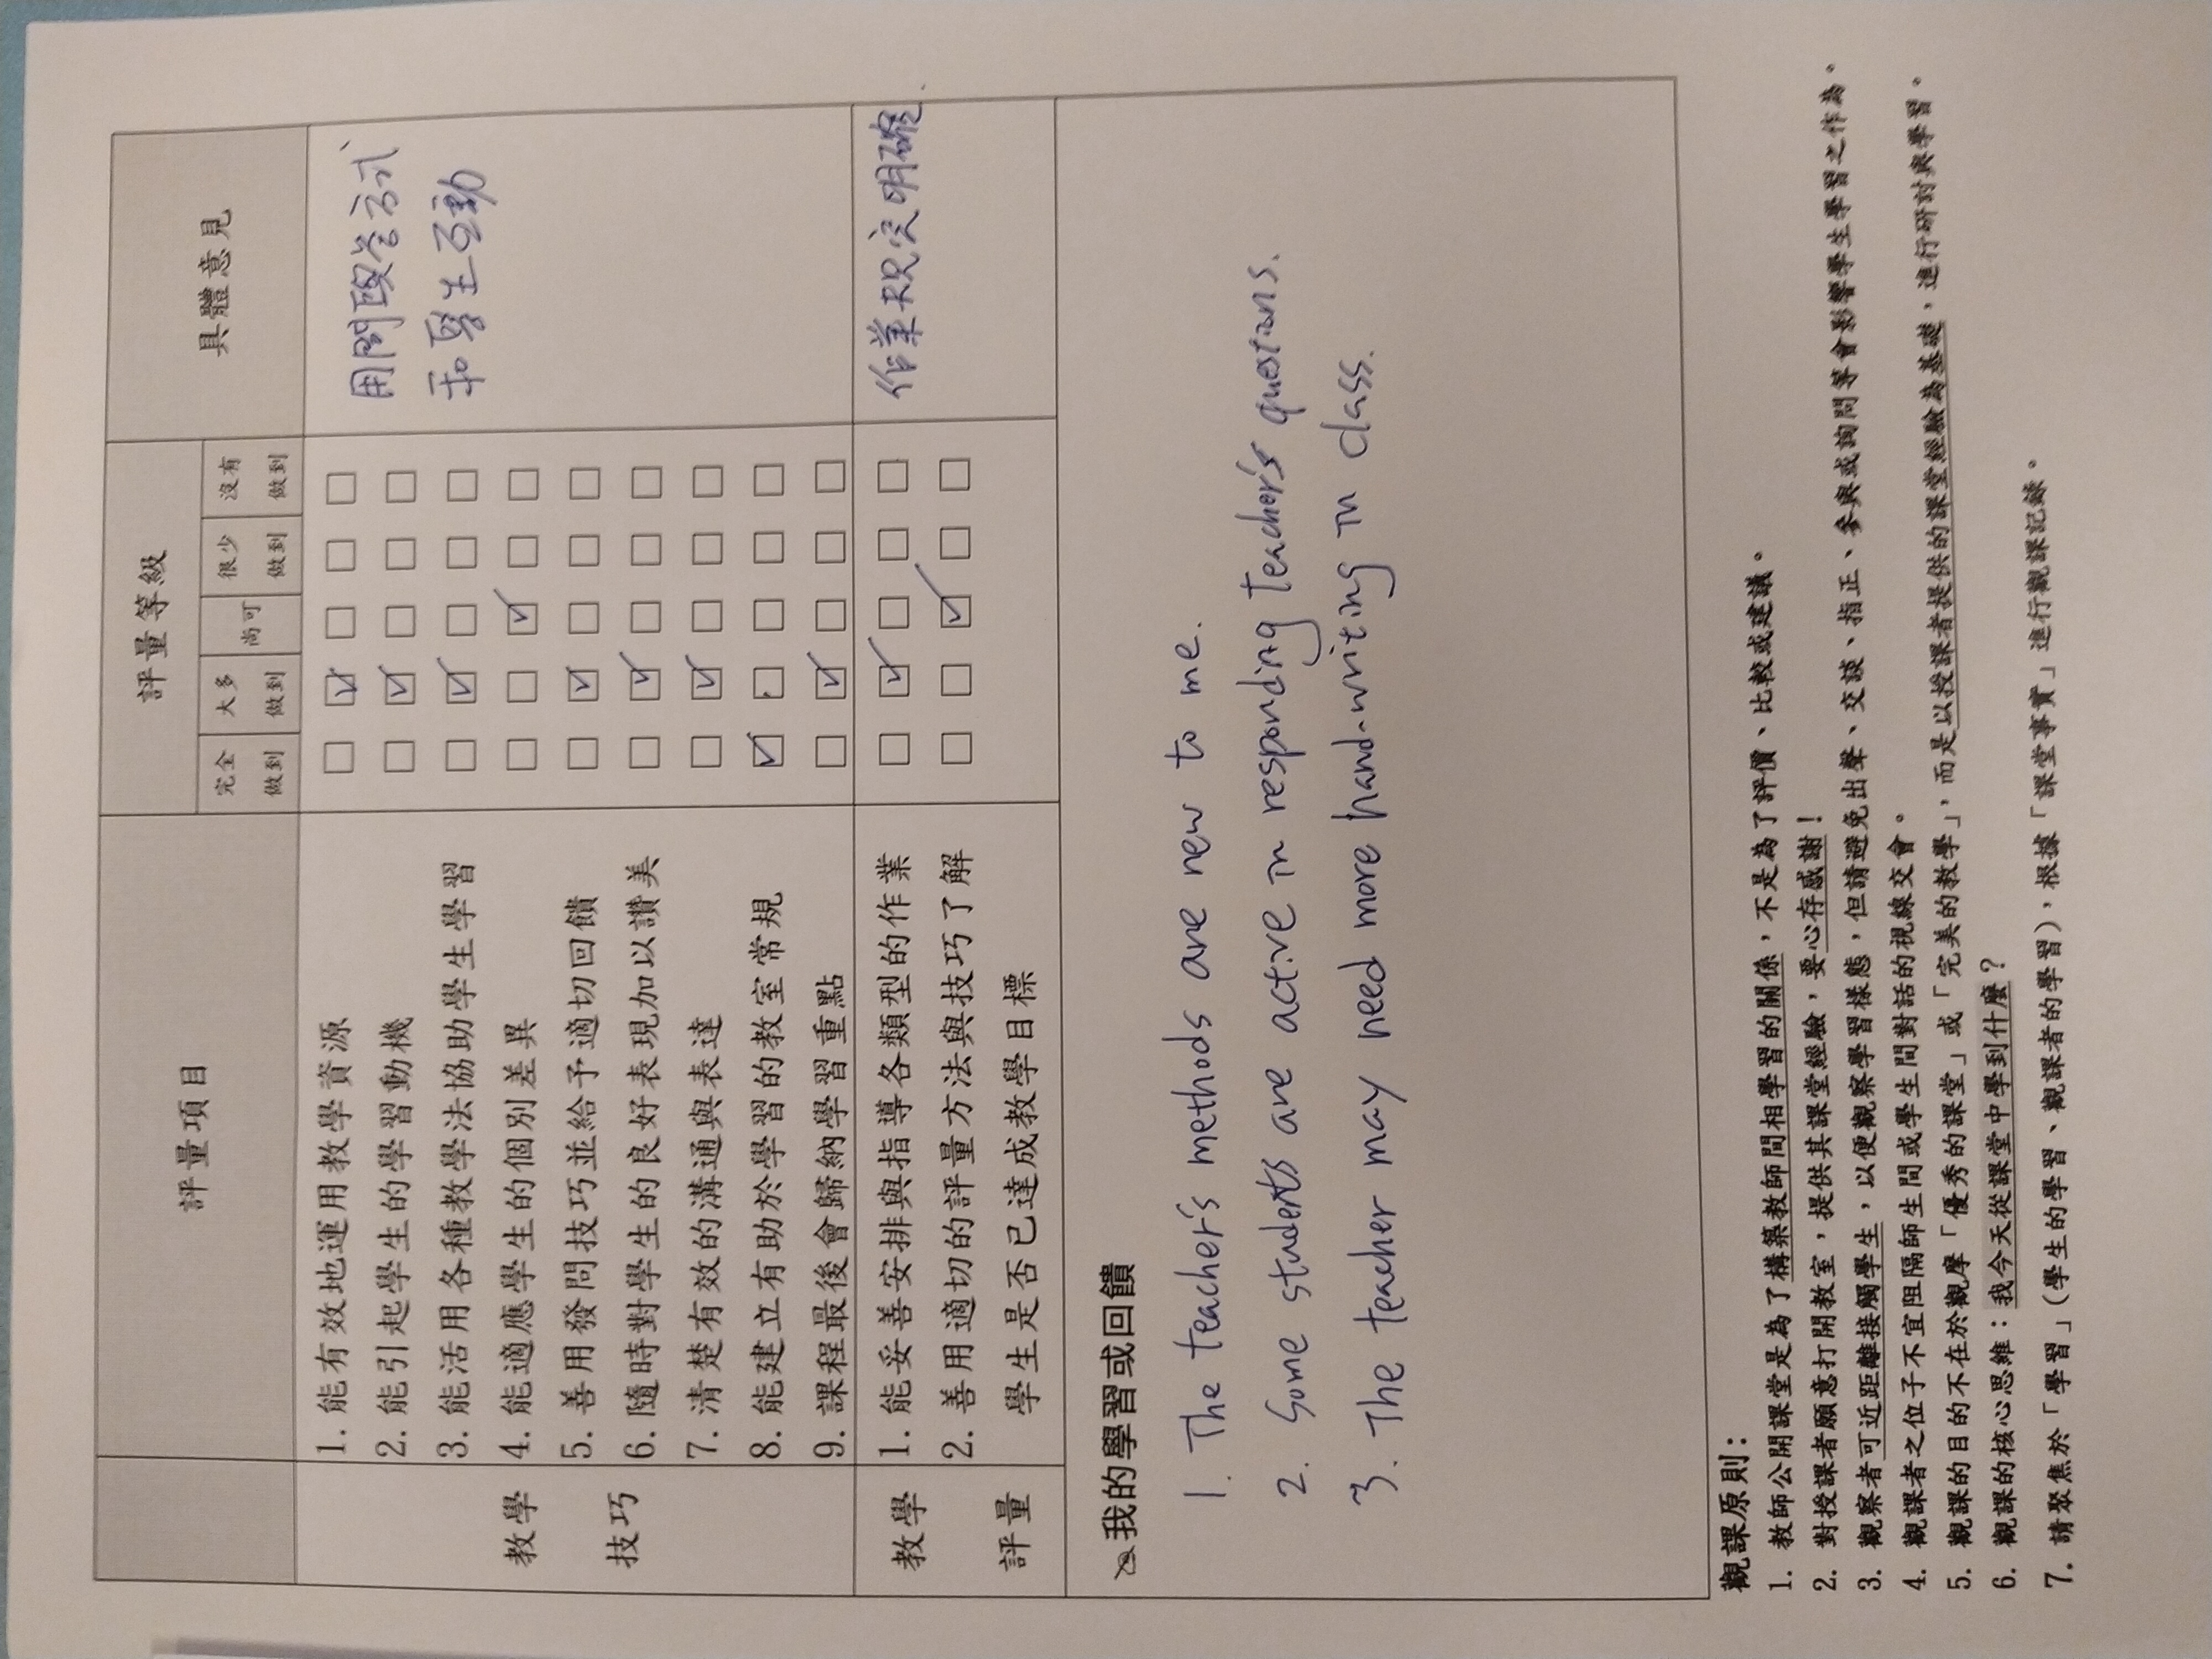 評量項目
評量等級
具體意見
完全做到
大多做到
尚可
很少做到
沒有做到
教學技巧
1. 能有效地運用教學資源
2. 能引起學生的學習動機
3. 能活用各種教學法協助學生學習
4. 能適應學生的個別差異
5. 善用發問技巧並給予適切回饋
6. 隨時對學生的良好表現加以讚美
7. 清楚有效的溝通與表達
8. 能建立有助於學習的教室常規
9. 課程最後會歸納學習重點
用問答方式
和學生互動
教學評量
1. 能妥善安排與指導各類型的作業
2. 善用適切的評量方法與技巧了解
學生是否已達成教學目標
作業規定明確.
我的學習或回饋
1. The teacher's methods are new to me.
2. Some students are active in responding teacher's questions.
3. The teacher may need more hand-writing in class.
觀課原則:
1. 教師公開課堂是為了構築教師間相學習的關係,不是為了評價、比較或建議。
2. 對授課者願意打開教室,提供其課堂經驗,要心存感謝!
3. 觀察者可近距離接觸學生,以便觀察學習樣態,但請避免出聲、交談、指正、參與或詢問等會影響學生學習之作為。
4. 觀課者之位子不宜阻隔師生間或學生間對話的視線交會。
5. 觀課的目的不在於觀摩「優秀的課堂」或「完美的教學」,而是以授課者提供的課堂經驗為基礎,進行研討與學習。
6. 觀課的核心思維:我今天從課堂中學到什麼?
7. 請聚焦於「學習」(學生的學習、觀課者的學習),根據「課堂事實」進行觀課記錄。